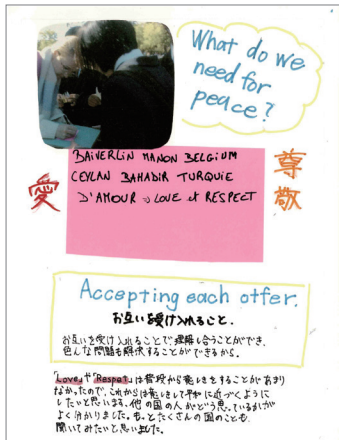 What do we
need for
peace?
BAIVERLIN MANON BELGIUM
CEYLAN BAHADIR TURQUIE
D'AMOUR → LOVE et RESPECT
愛
尊
敬
Accepting each otfer.
お互いを受け入れること。
お互いを受け入れることで理解し合うことができ、
色んな問題も解決することができるから。
「Love」や「Respect」は普段から意しきをすることがあまり
なかったので、これからは意しきして平和に近づくように
したいと思います。他の国の人がどう思っているかが
よく分かりました。もっとたくさんの国のことも
聞いてみたいと思いました。